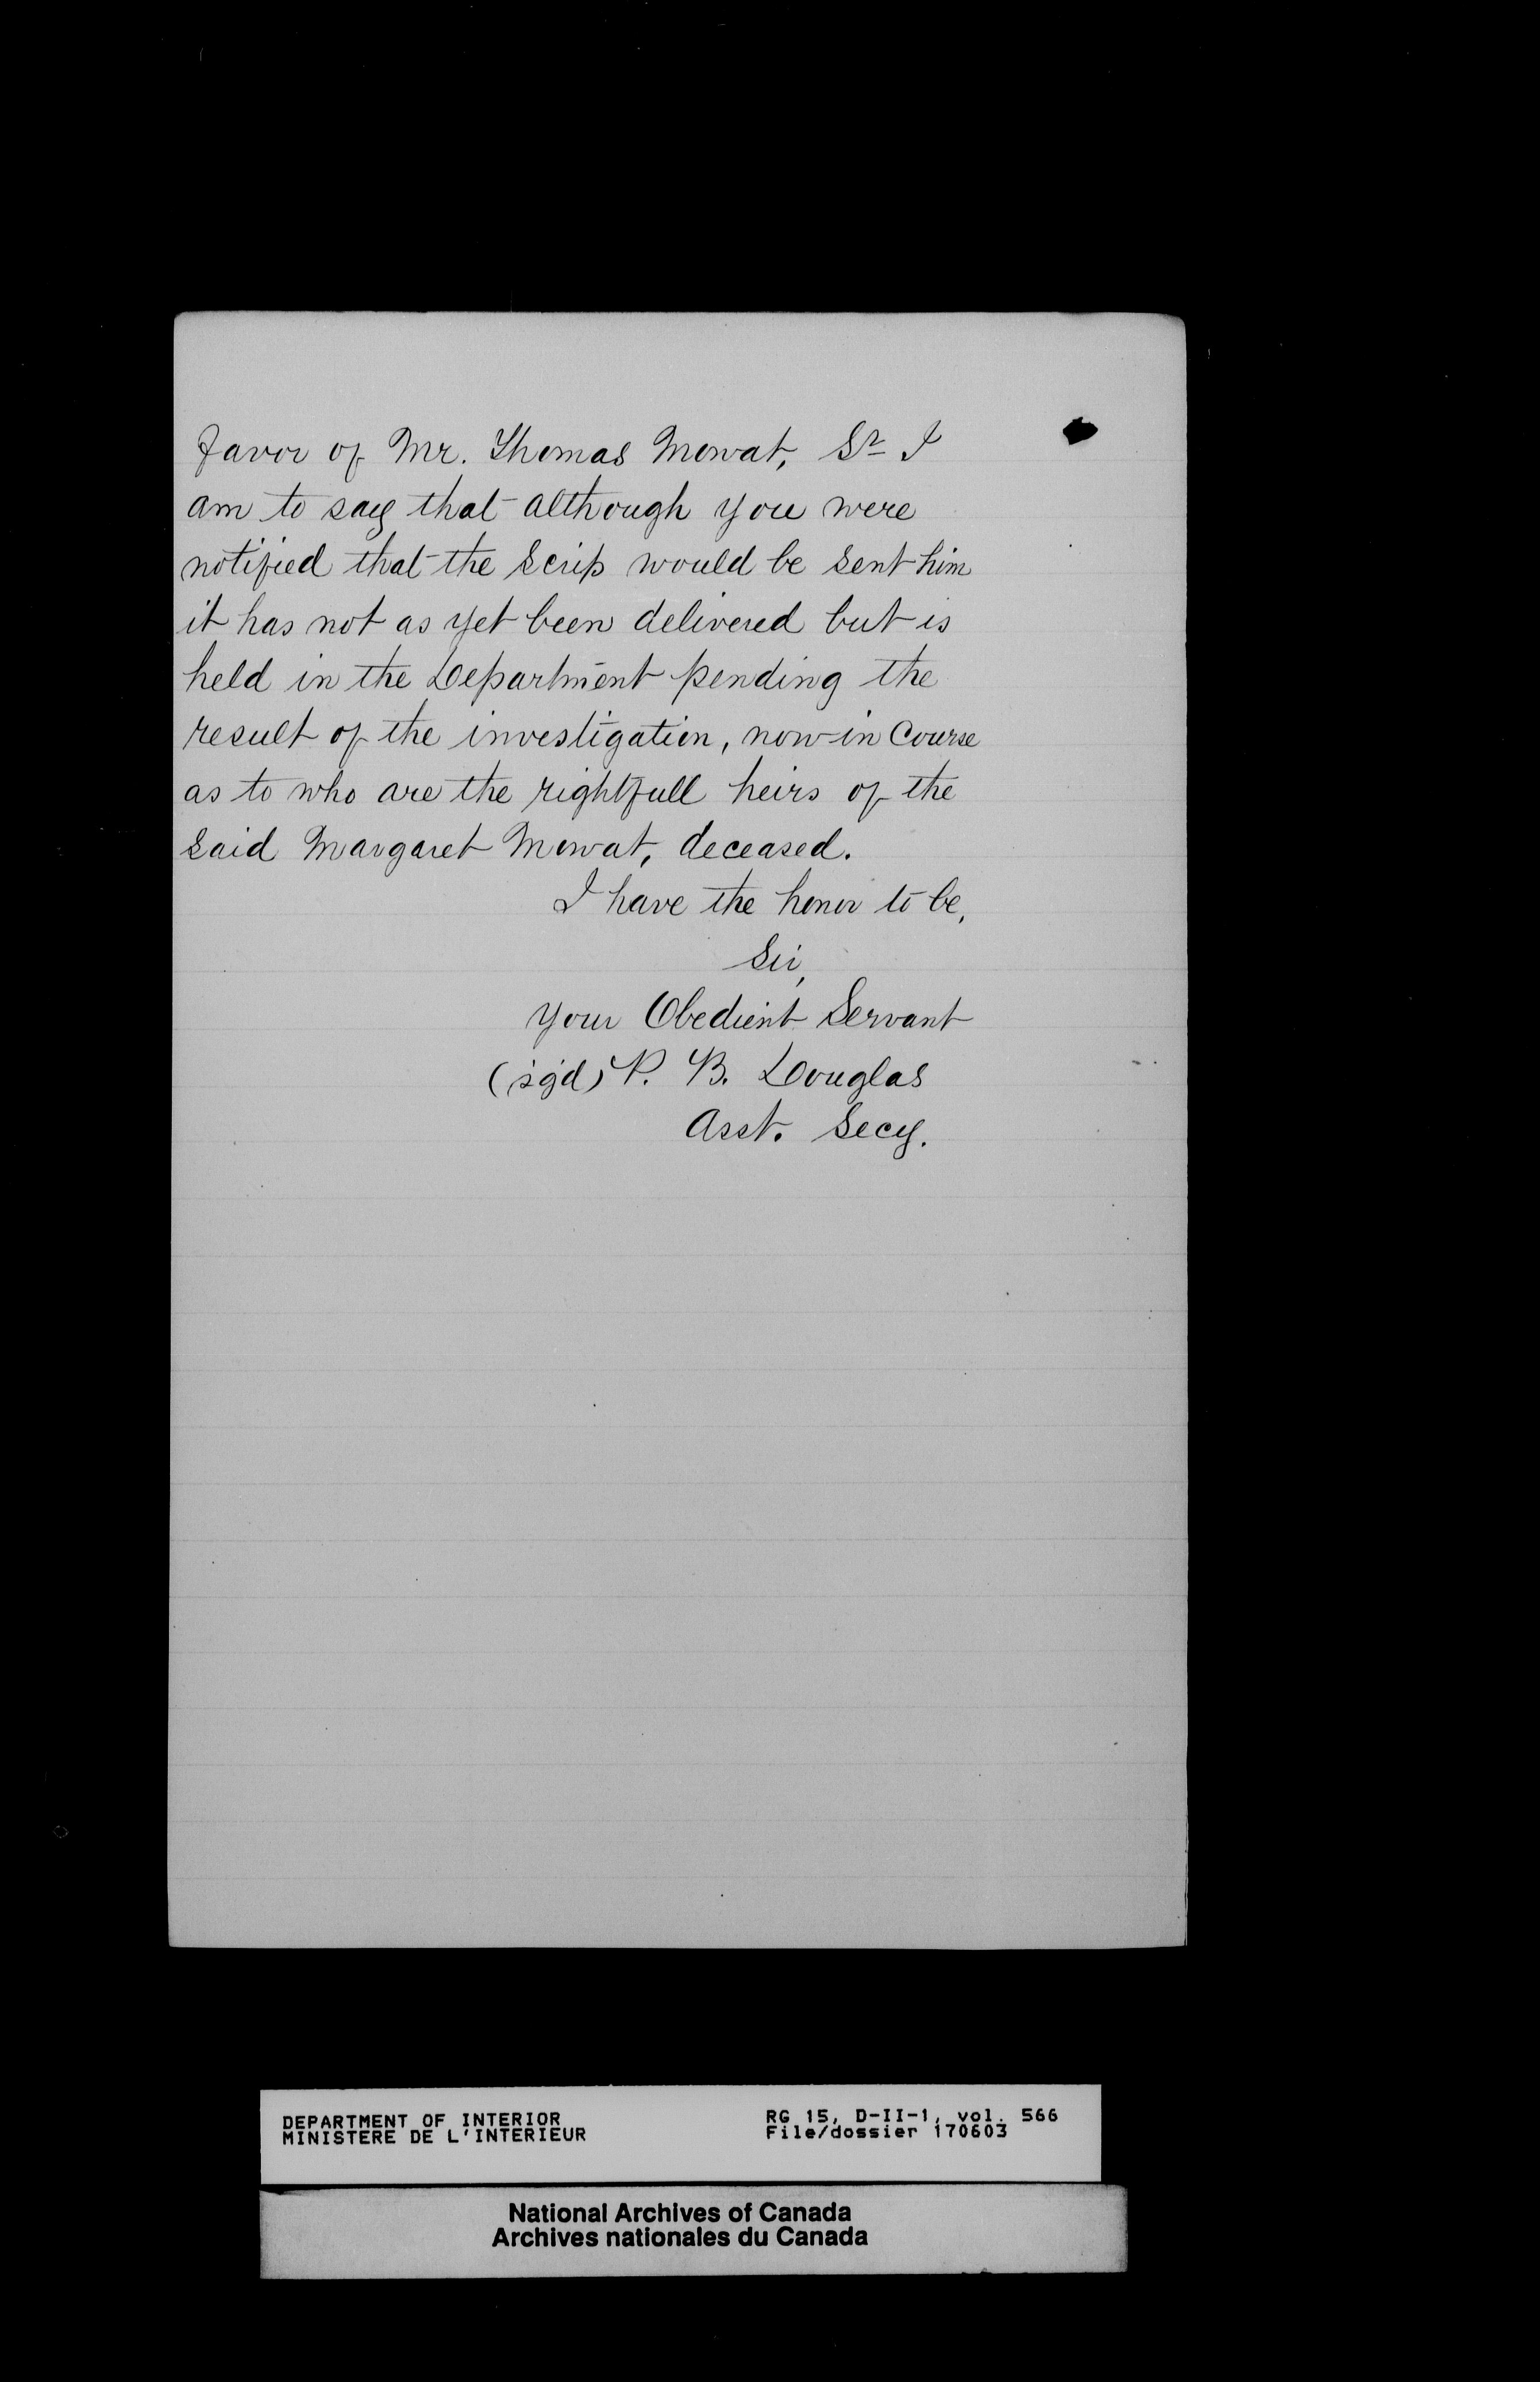 favor of Mr. Thomas Mowat, Sr I
am to say that although you were
notified that the Scrip would be sent him
it has not as yet been delivered but is
held in the Department pending the
result of the investigation, now in Course
as to who are the rightfull heirs of the
said Margaret Mowat, deceased.
I have the honor to be,
Sir,
Your Obedient Servant
(sg'd) P. B. Douglas
Asst. Secy.
DEPARTMENT OF INTERIOR RG 15, D-II-1, vol. 566
MINISTERE DE L'INTERIEUR File/dossier 170603
National Archives of Canada
Archives nationales du Canada